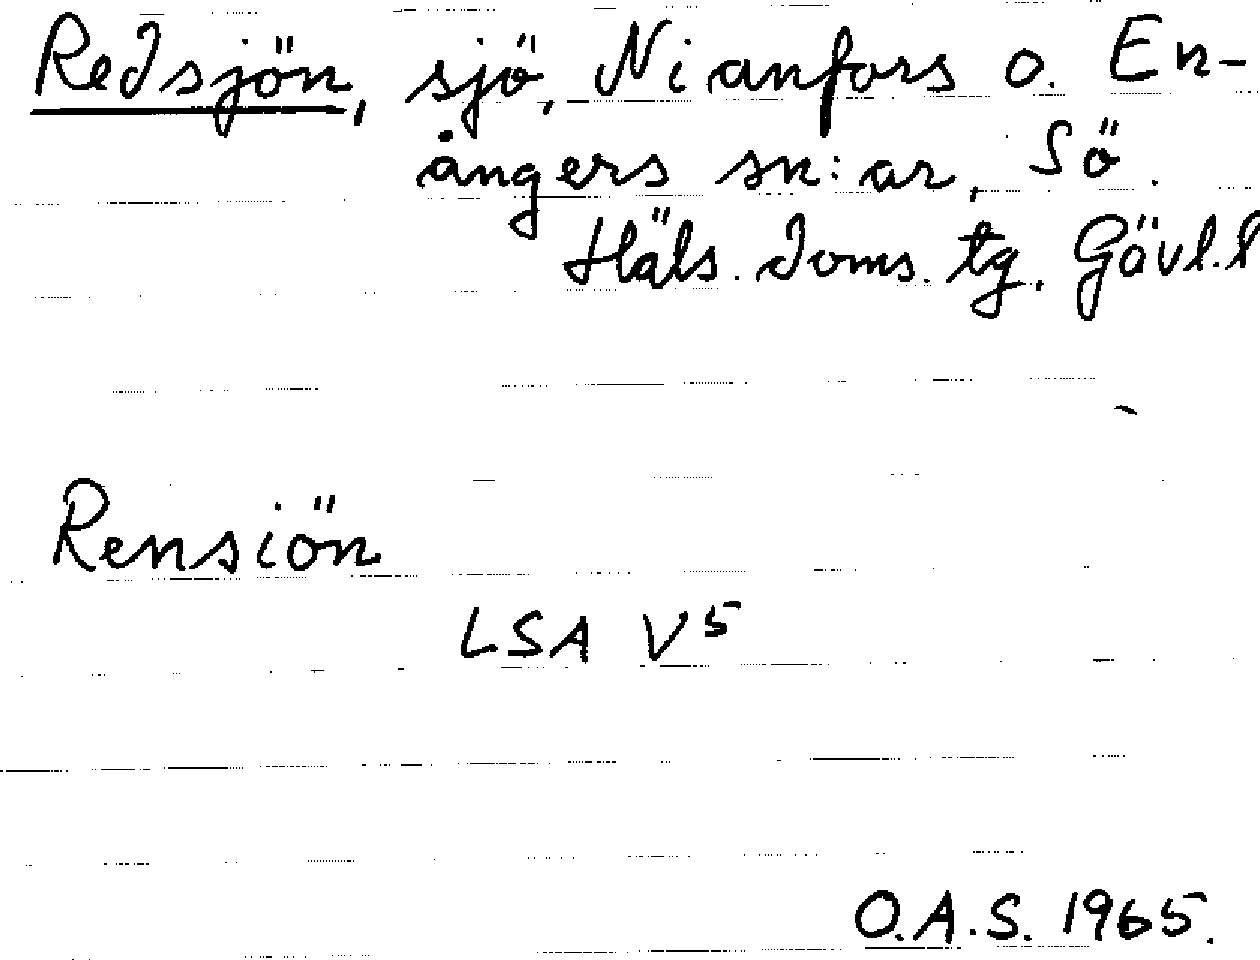 Redsjön, sjö, Nianfors o. En-
ångers sn:ar, Sö.
Häls. doms. tg, Gävl.l
Rensiön
LSA V5
O.A.S. 1965.